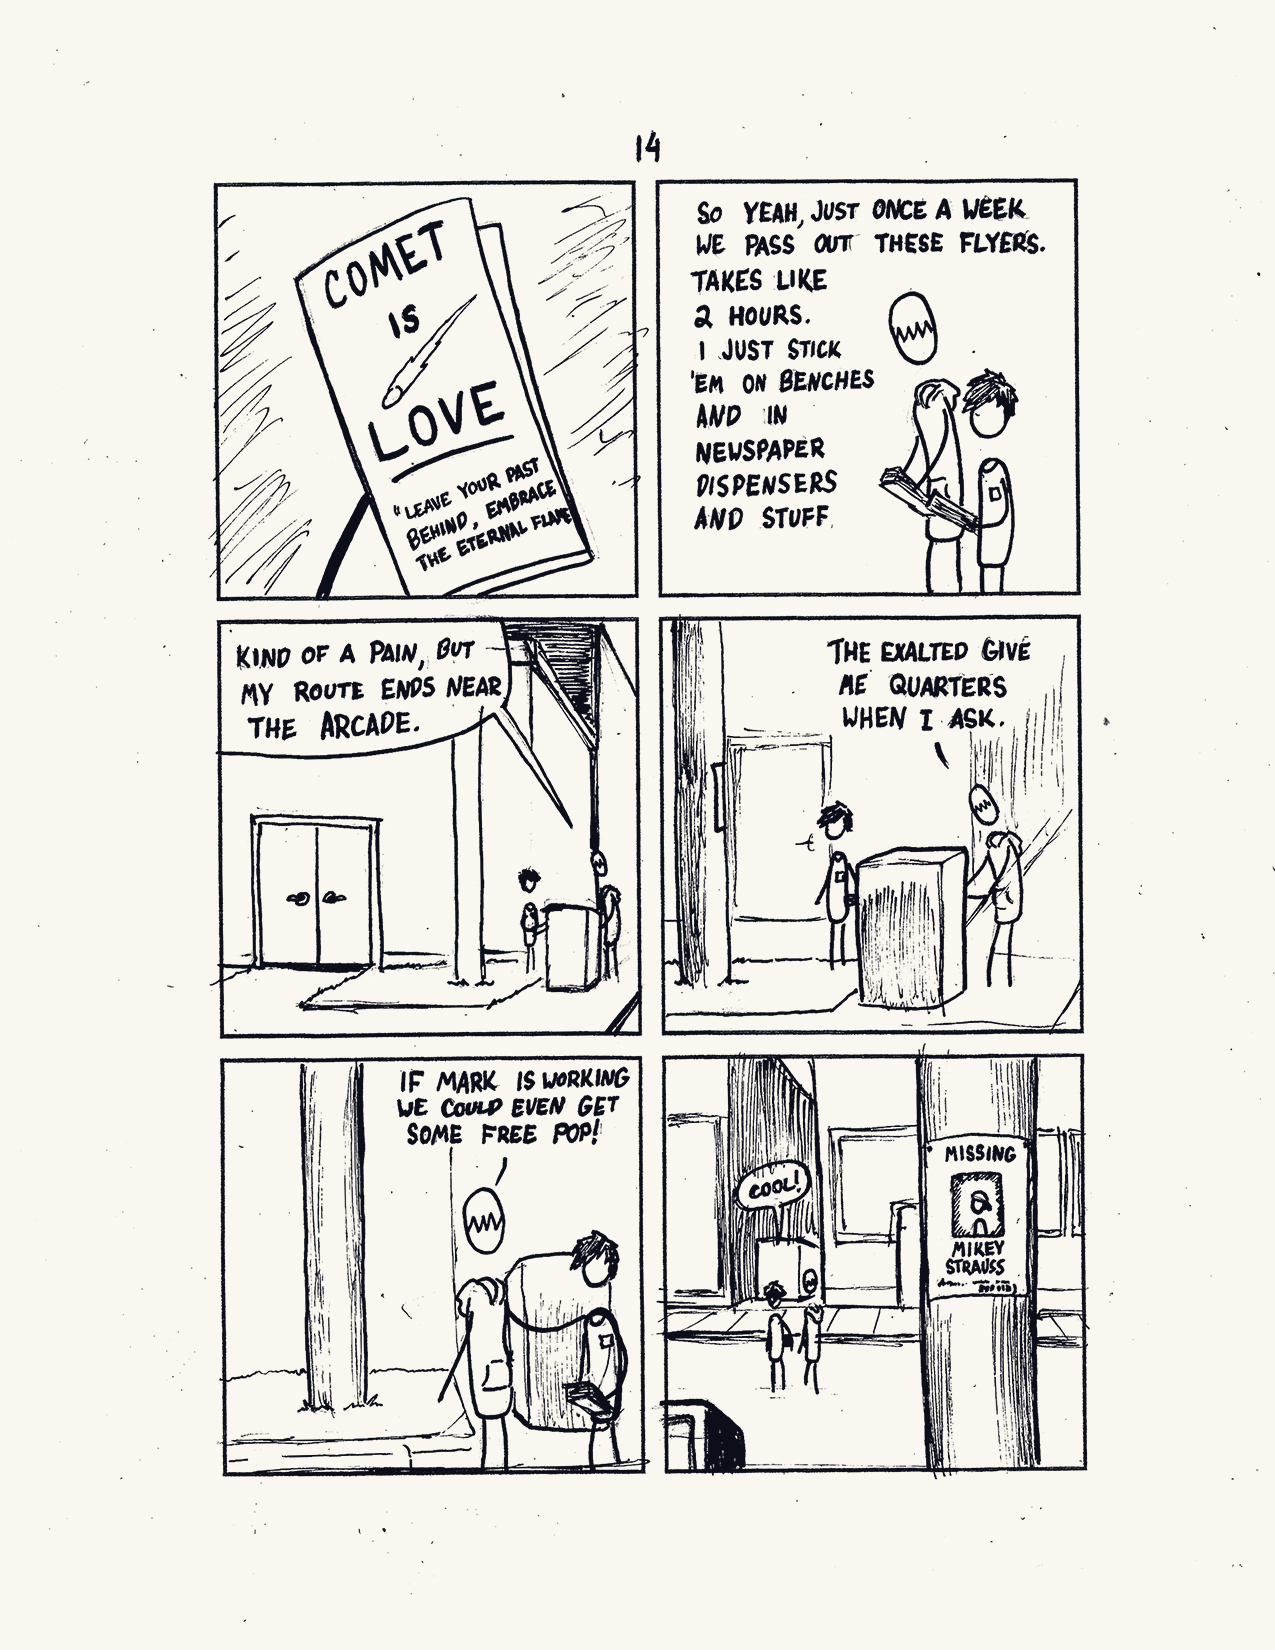 14
COMET
IS
LOVE
"LEAVE YOUR PAST
BEHIND, EMBRACE
THE ETERNAL FLAME
SO YEAH, JUST ONCE A WEEK
WE PASS OUT THESE FLYERS.
TAKES LIKE
2 HOURS.
I JUST STICK
'EM ON BENCHES
AND IN
NEWSPAPER
DISPENSERS
AND STUFF.
KIND OF A PAIN, BUT
MY ROUTE ENDS NEAR
THE ARCADE.
THE EXALTED GIVE
ME QUARTERS
WHEN I ASK.
IF MARK IS WORKING
WE COULD EVEN GET
SOME FREE POP!
COOL!
MISSING
MIKEY
STRAUSS